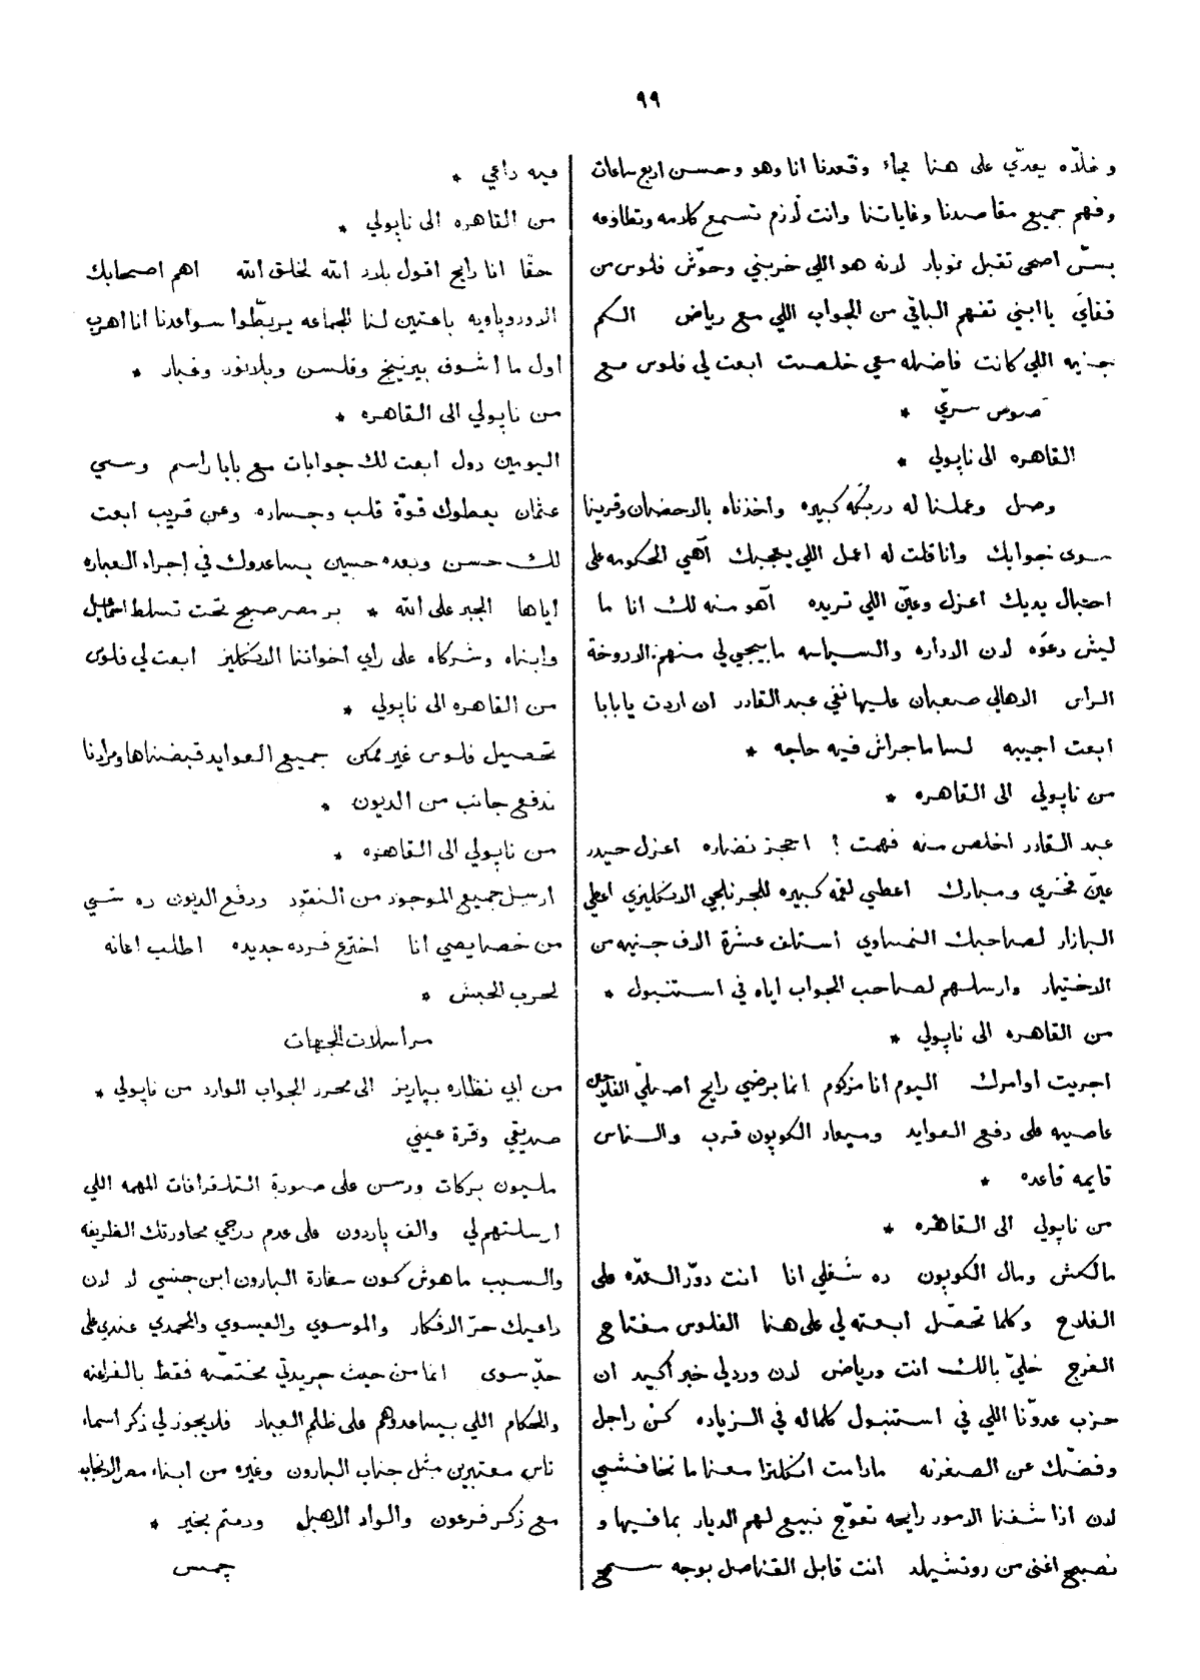 ٩٩
وخلّاه يعدّي على هنا بجاء وقعدنا انا وهو وحسن اربع ساعات
وفهم جميع مقاصدنا وغاياتنا وانت لازم تسمع كلامه وتطاوعه
بسّ اصحى تقبل نوبار لانه هو اللي خربني وحوّش فلوس من
قفايَ يا ابني تفهم الباقي من الجواب اللي مع رياض الكم
جنيه اللي كانت فاضله معي خلصت ابعت لي فلوس مع
مخصوص سرّي *
القاهره الى ناپولي *
وصل وعملنا له دربكّه كبيره واخذناه بالاحضان وقرينا
سوى جوابك وانا قلت له اعمل اللي يعجبك آهي الحكومه على
احتبال يديك اعزل وعيّن اللي تريده آهو منه لك انا ما
ليش دعوَه لان الاداره والسياسه ما بيجي لي منهم الا دوخة
الراس الاهالي صعبان عليها نفي عبد القادر ان اردت يا بابا
ابعت اجيبه لسا ما جراش فيه حاجه *
من ناپولي الى القاهره *
عبد القادر اخلص منه فهمت ! احجز نضاره اعزل حيدر
عيّن فخري ومبارك اعطي لقمه كبيره للجرنلجي الانكليزي اعطي
البازار لصاحبك النمساوي استلف عشرة الاف جنيه من
الاختيار وارسلهم لصاحب الجواب اياه في استنبول *
من القاهره الى ناپولي *
اجريت اوامرك اليوم انا مزكوم انما برضي رايح اصملّي الفلاحين
عاصيه على دفع العوايد وميعاد الكوپون قرب والناس
قايمه قاعده *
من ناپولي الى القاهره *
مالكش ومال الكوپون ده شغلي انا انت دوّر العدّه على
الفلاح وكلما تحصّل ابعته لي على هنا الفلوس مفتاح
الفرج خليّ بالك انت ورياض لان وردلي خبر اكيد ان
حزب عدوّنا اللي في استنبول كلماله في الزياده كنْ راجل
وفضّك عن الصغرنه مادامت انكلترا معنا ما تخافشي
لان اذا شفنا الامور رايحه تعوّج نبيع لهم الديار بما فيها و
نصبح اغنى من روتشيلد انت قابل القناصل بوجه سمح
فيه داعي *
من القاهره الى ناپولي *
حقّا انا رايح اقول بلاد الله لخلق الله اهم اصحابك
الاوروپاويه باعتين لنا الجماعه يربطّوا سواعدنا انا اهرب
اول ما اشوف بيرنينج وقلسن وبلانور وغبار *
من ناپولي الى القاهره *
اليومين دول ابعت لك جوابات مع بابا راسم وسمي
عثمان يعطوك قوّة قلب وجساره وعن قريب ابعت
لك حسن وبعده حسين يساعدوك في إجراء العباره
اياها الجبر على الله * بر مصر صبح تحت تسلط اسماعيل
وابناه وشركاه على رأي اخواننا الانكليز ابعت لي فلوس
من القاهره الى ناپولي *
تحصيل فلوس غير ممكن جميع العوايد قبضناها ومرادنا
ندفع جانب من الديون *
من ناپولي الى القاهره *
ارسل جميع الموجود من النقود ودفع الديون ده شي
من خصايصي انا اخترع فرده جديده اطلب اعانه
لحرب الحبش *
مراسلات الجهات
من ابي نظاره بپاريز الى محرر الجواب الوارد من ناپولي *
صديقي وقرة عيني
مليون بركات ورسن على صورة التلغرافات المهمه اللي
ارسلتهم لي والف پاردون على عدم درجي محاورتك الظريفه
والسبب ماهوش كون سعادة البارون ابن جنسي لا لان
داعيك حرّ الافكار والموسوي والعيسوي والمحمدي عندي على
حدّ سوى انما من حيث جريدتي مختصّه فقط بالفراعنه
والحكام اللي بيساعدوهم على ظلم العباد فلا يجوز لي ذكر اسماء
ناس معتبرين مثل جناب البارون وغيره من ابناء مصر الانجاب
مع ذكر فرعون والواد الاهبل ودمتم بخير *
چمس